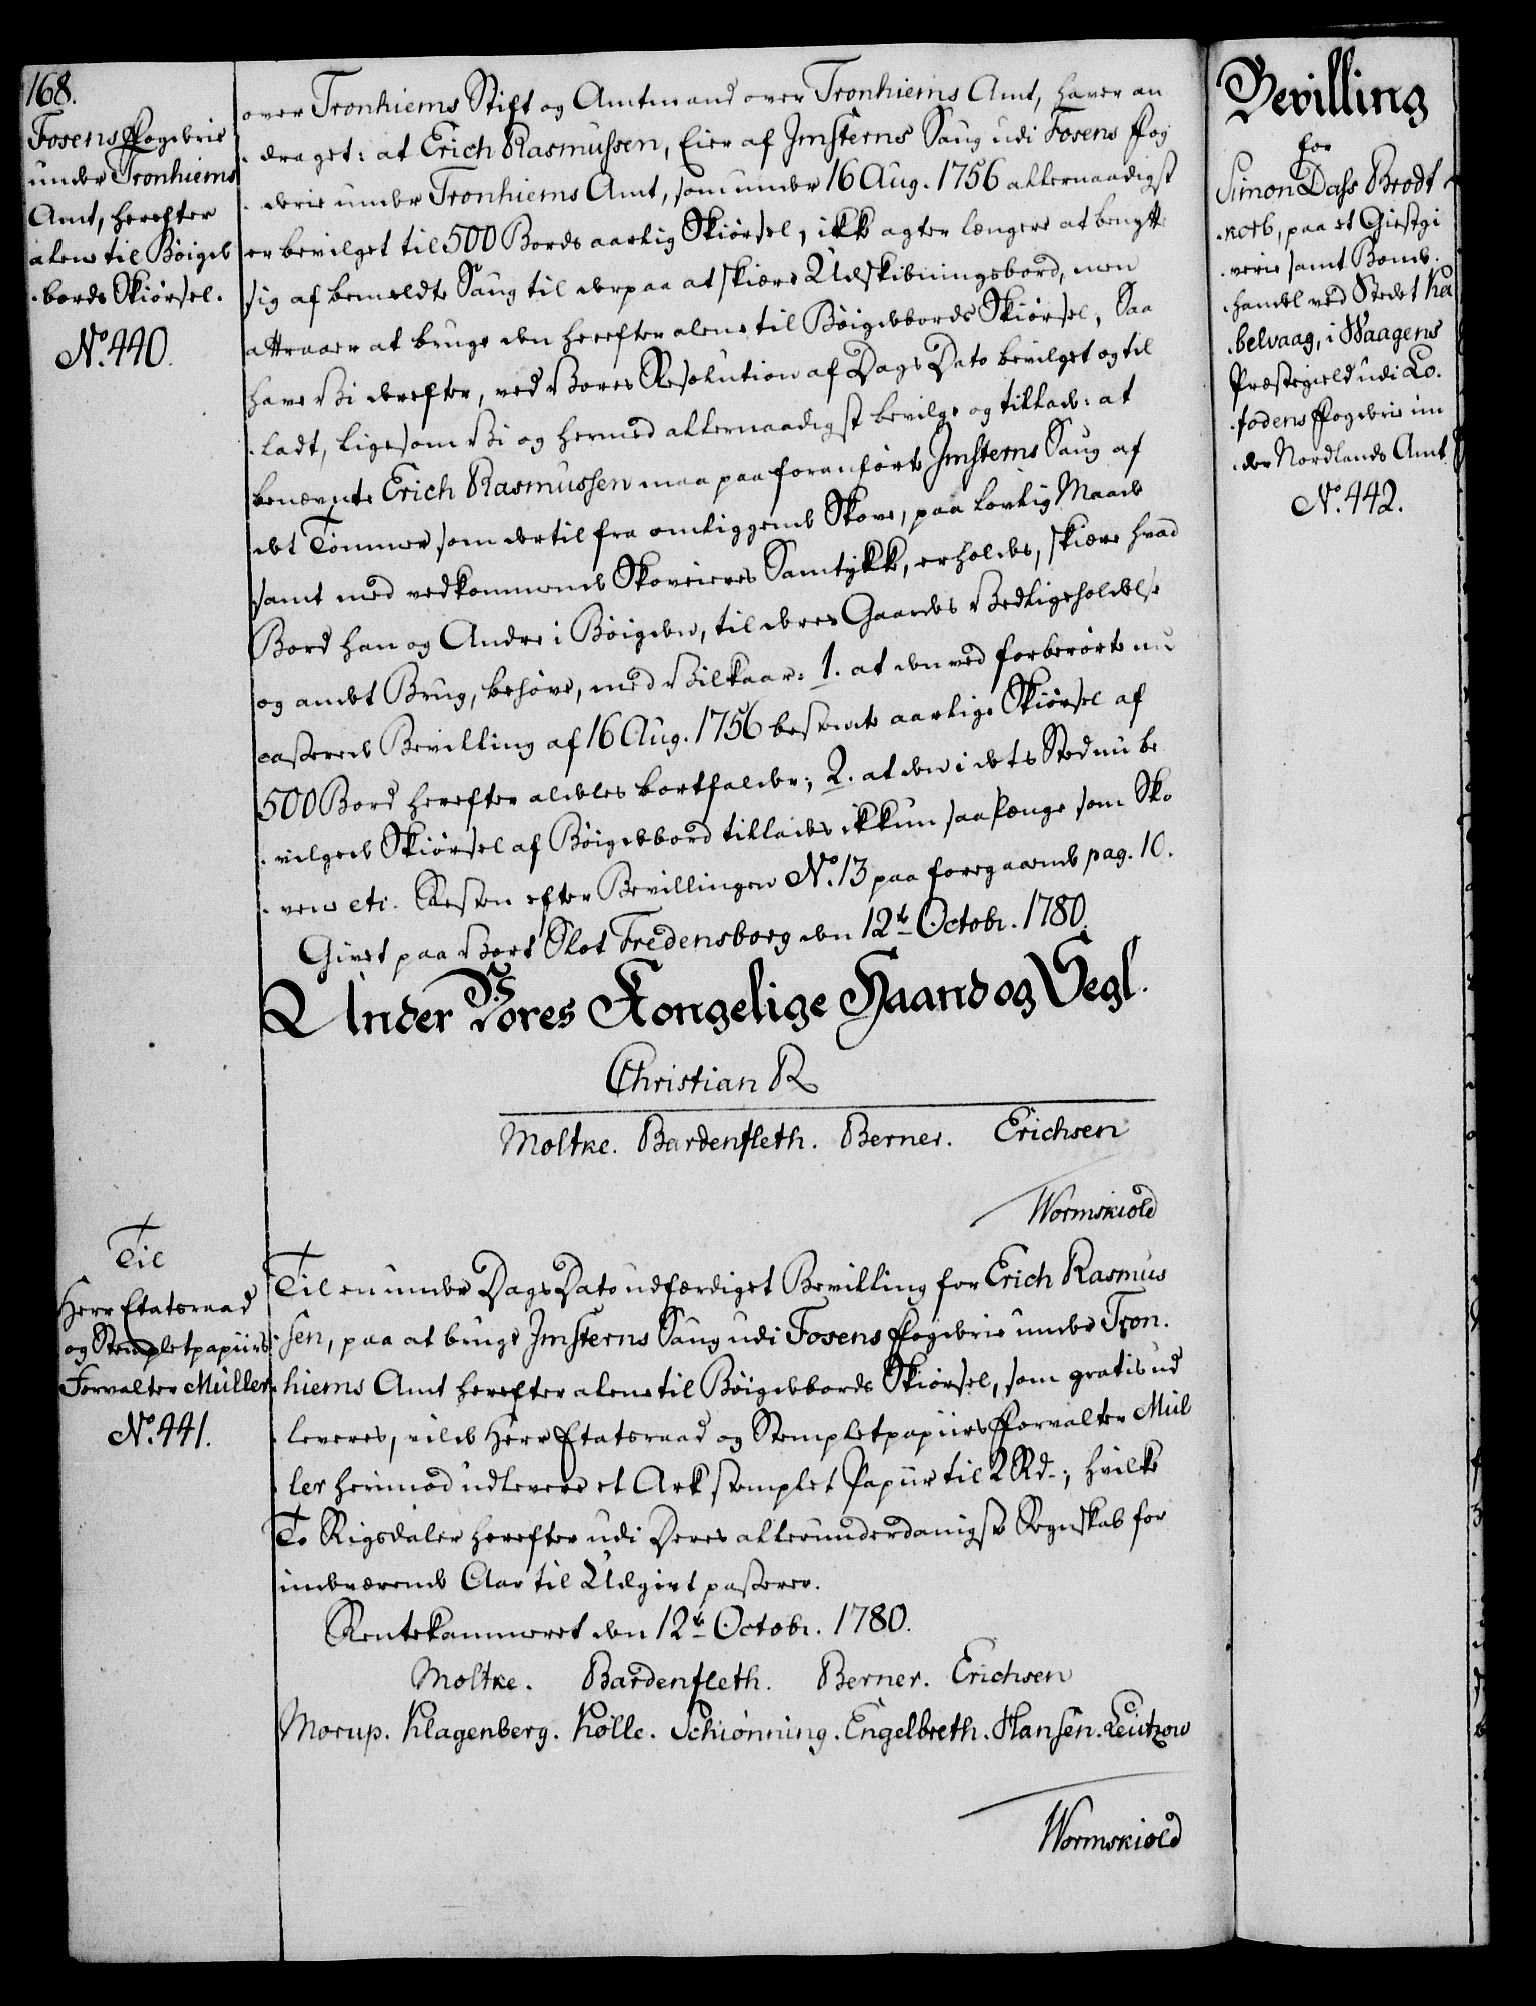 168.
Fosens Fogderie
under Tronhiems
Amt, herefter
alene til Böigde
bords Skiørsel.
No. 440.
over Tronhiems Stift og Amtmand over Tronhiems Amt, haver an
draget: at Erich Rasmussen, Eier af Jmsterns Saug udi Fosens Fog
derie under Tronhiems Amt, som under 16 Aug. 1756 allernaadigst
er bevilget til 500 Bords aarlig Skiørsel, ikke agter længere at benytte
sig af bemeldte Saug til derpaa at skiære Udskibningsbord, men
attraaer at bruge den herefter alene til Böigdebords Skiørsel, Saa
have Vi derefter, ved Vores Resolution af Dags Dato bevilget og til
ladt, ligesom Vi og hermed allernaadigst bevilge og tillade: at
benævnte Erich Rasmussen maa paa foranførte Jmsterns Saug af
det Tømmer som dertil fra omliggende Skove, paa lovlig Maade
samt med vedkommende Skoveieres Samtykke, erholdes, skiære hvad
Bord han og Andre i Böigden, til deres Gaardes Vedligeholdelse
og andet Brug, behøve, med Vilkaar: 1. at den ved forberørte nu
casserede Bevilling af 16 Aug. 1756 bestemte aarlige Skiørsel af
500 Bord herefter aldeles bortfalder; 2. at den i dets Sted nu be
vilgede Skiørsel af Böigdebord tillades ikkun saalænge som Sko
vene etc. Resten efter Bevillingen No. 13 paa foregaaende pag. 10.
Givet paa Vort Slot Fredensborg den 12te Octobr. 1780.
Under Vores Kongelige Haand og Segl.
Christian R
Moltke. Bardenfleth. Berner. Erichsen
Wormskiold
Til
Herr Etatsraad
og Stempletpapiirs
Forvalter Müller
No. 441.
Til en under Dags Dato udfærdiget Bevilling for Erich Rasmus
sen, paa at bruge Jmsterns Saug udi Fosens Fogderie under Tron
hiems Amt herefter alene til Böigdebords Skiørsel, som gratis ud
leveres, vilde Herr Etatsraad og Stempletpapiirs Forvalter Mül
ler herimod udlevere et Ark stemplet Papiir til 2 Rd.; hvilke
To Rigsdaler herefter udi Deres allerunderdanigste Regnskab for
indeværende Aar til Udgivt passerer.
Rentekammeret den 12te Octobr. 1780.
Moltke. Bardenfleth. Berner. Erichsen
Morup. Klagenberg. Kölle. Schiønning. Engelbreth. Hansen. Leützow
Wormskiold
Bevilling
for
Simon Dass Brodt
korb, paa et Giestgi
verie samt Bonde
handel ved Stedet Ka
belvaag, i Waagens
Præstegield udi Lo
fodens Fogderie un
der Nordlands Amt
No. 442.